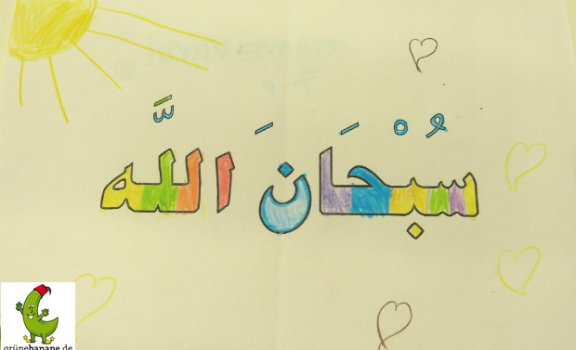 سُبْحَانَ اللَّه
grünebanane.de